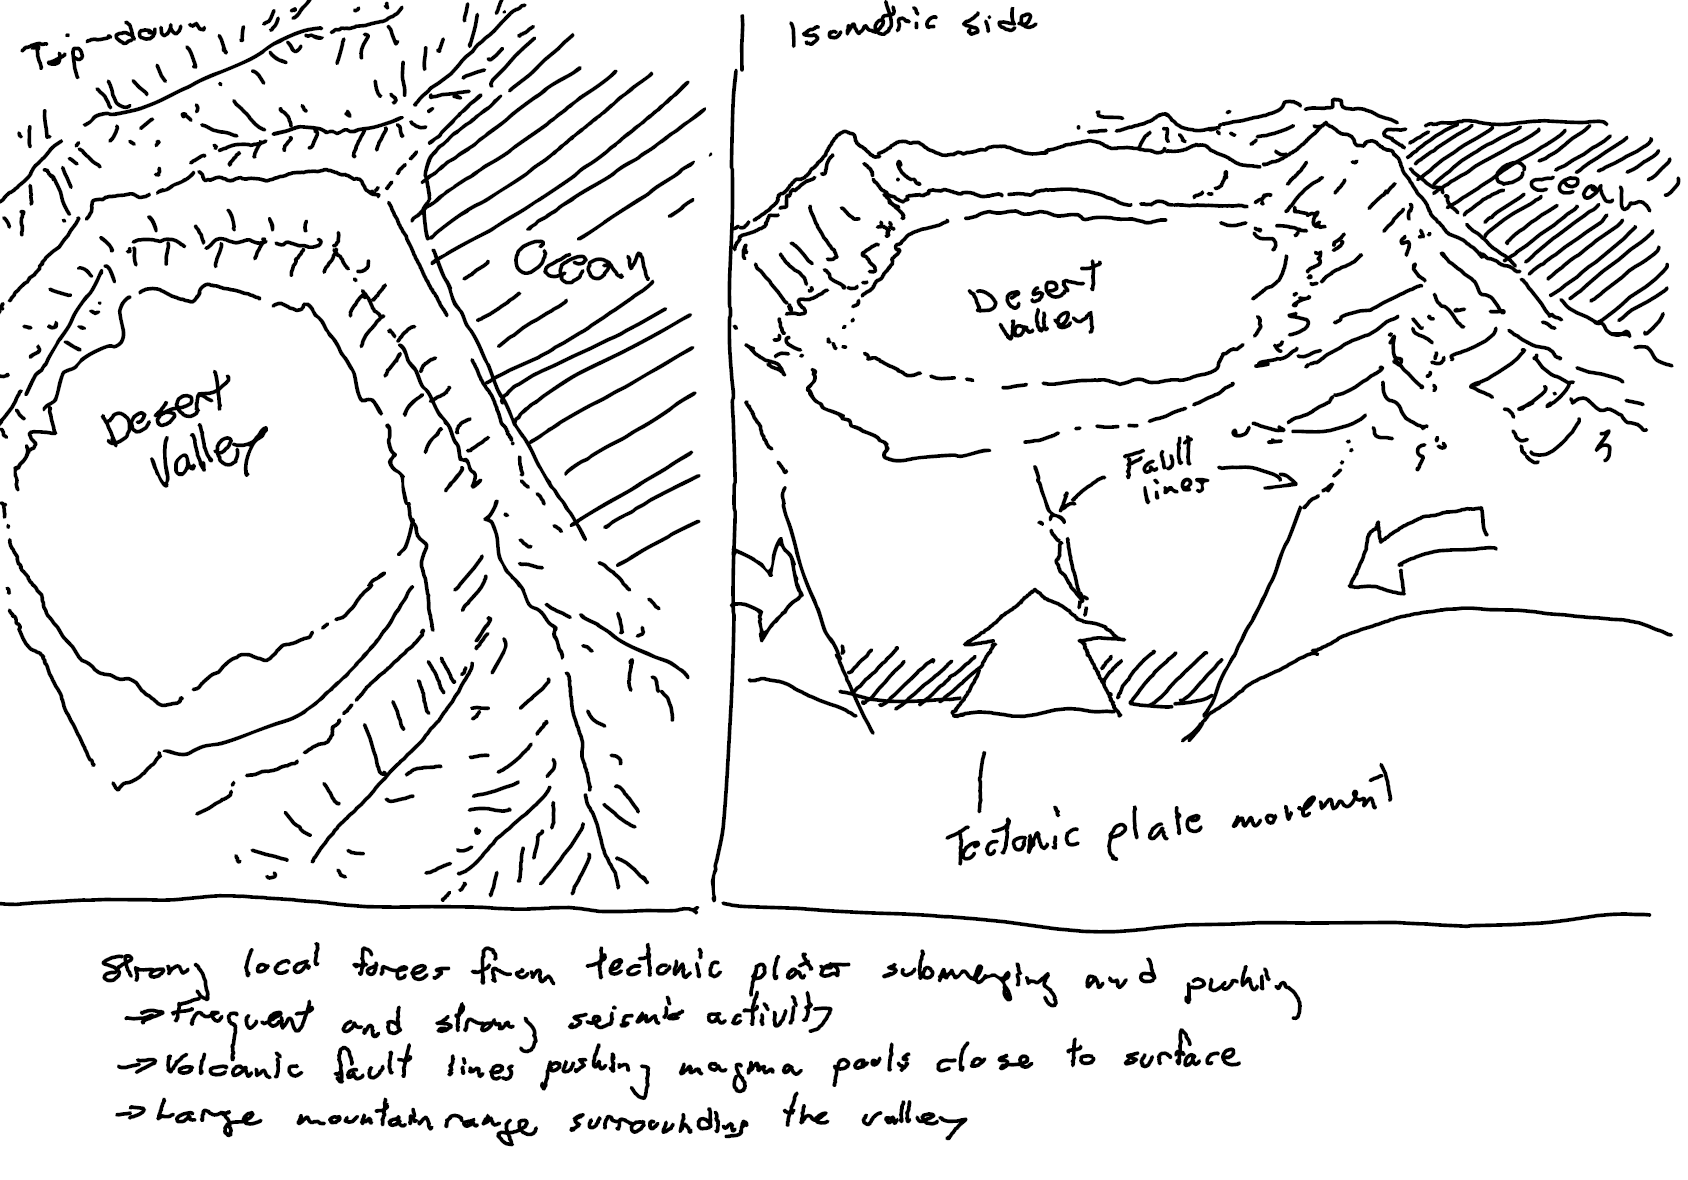 Top-down
Ocean
Desert
Valley
Isometric side
Ocean
Desert
Valley
Fault
lines
Tectonic plate movement
Strong local forces from tectonic plates submerging and pushing
→ Frequent and strong seismic activity
→ Volcanic fault lines pushing magma pools close to surface
→ Large mountain range surrounding the valley